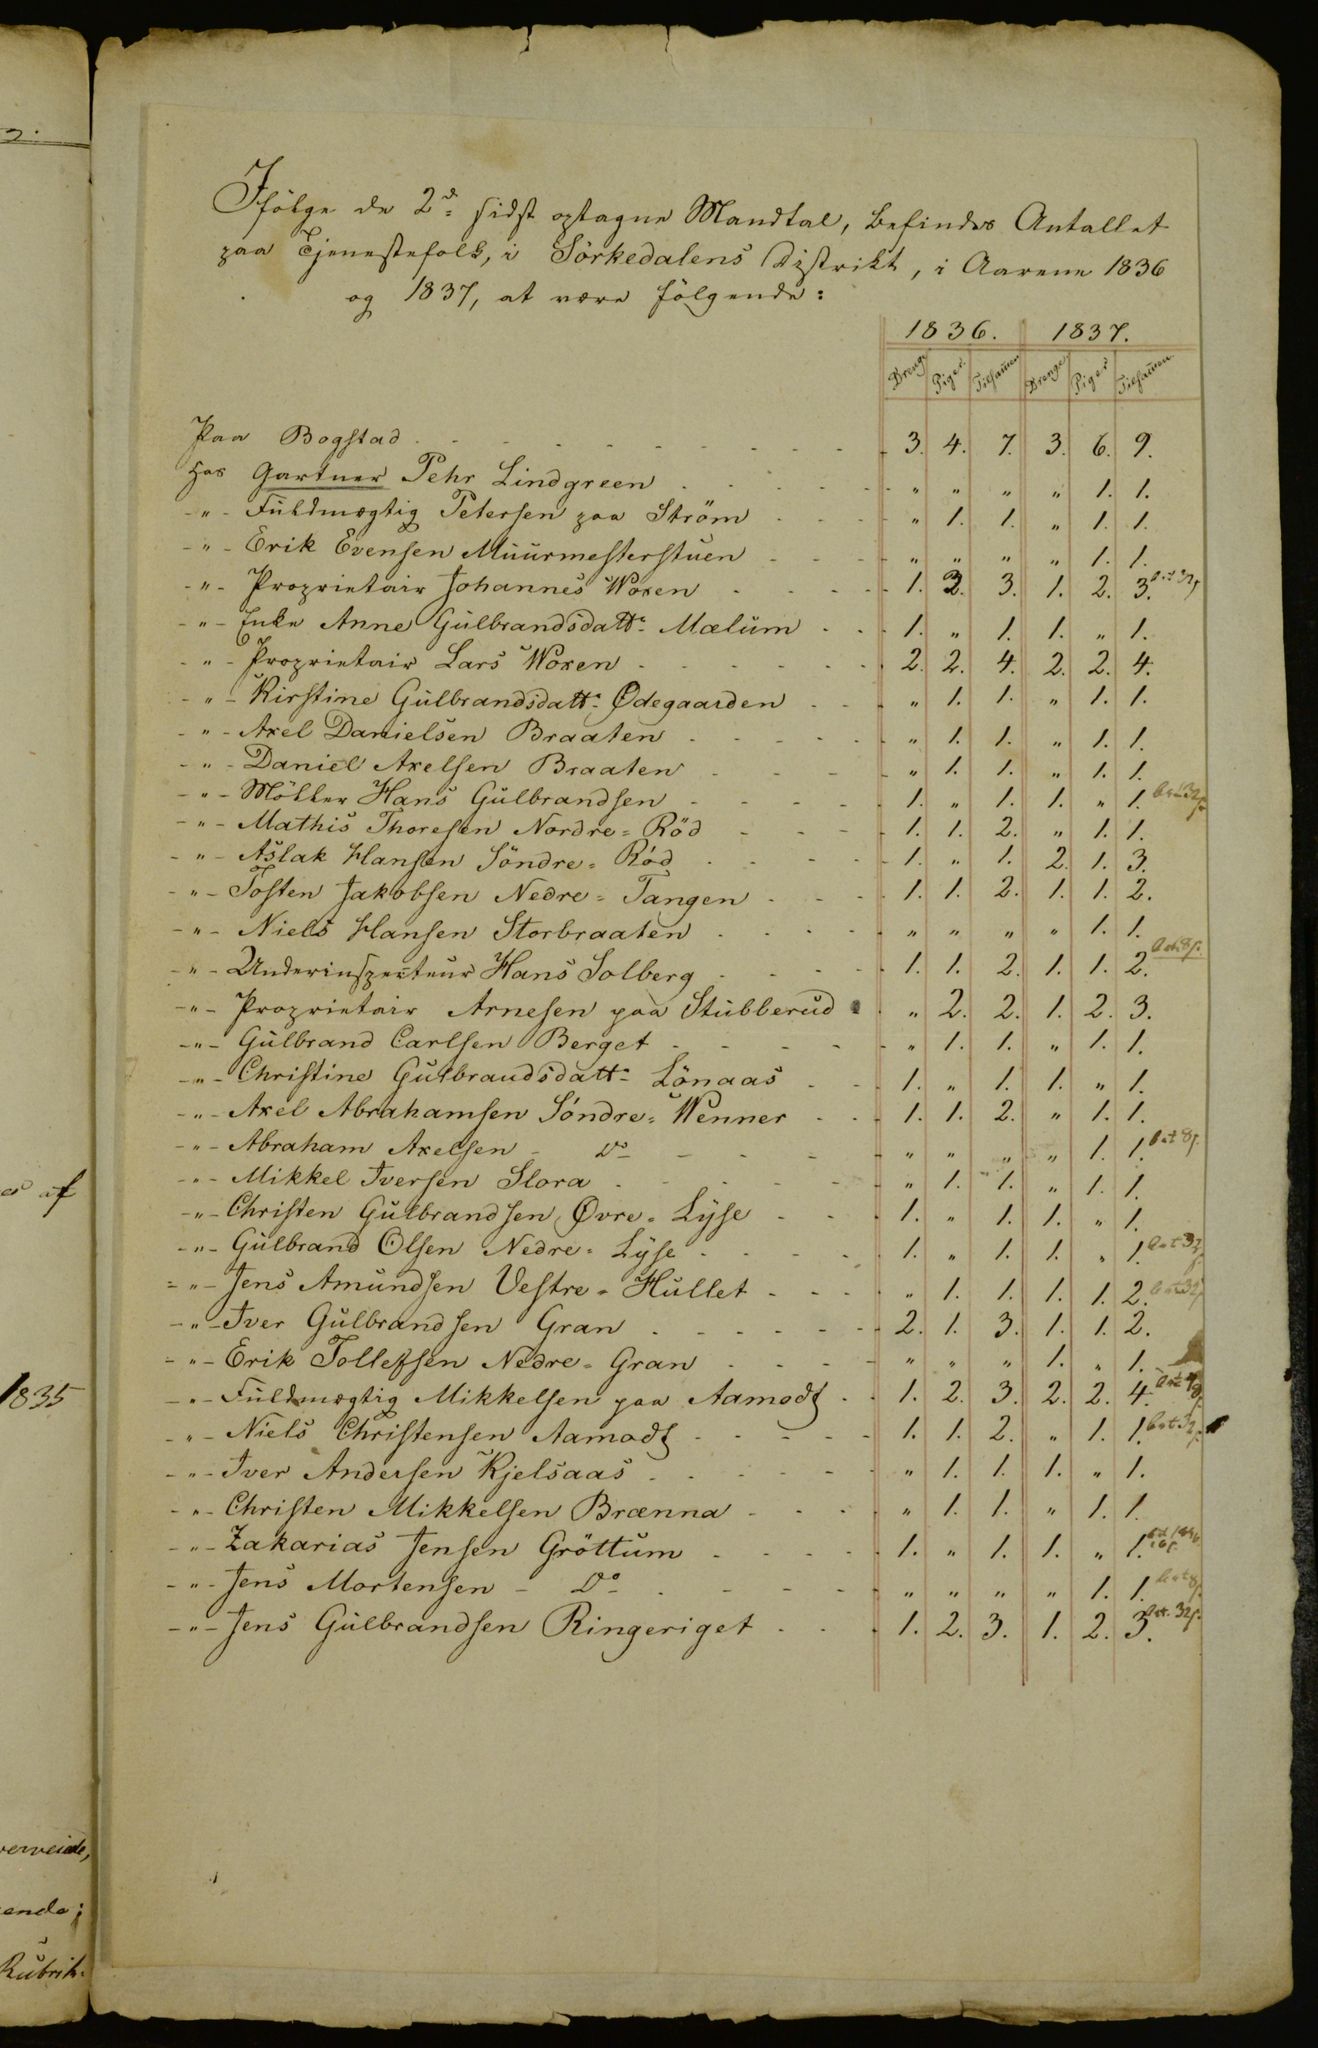 Ifölge de 2de sidst optagne Mandtal, befindes Antallet
paa Tjenestefolk, i Sörkedalens Distrikt, i Aarene 1836
og 1837, at være følgende:
1836. 1837.
Drenge Piger Tilsamen Drenge Piger Tilsamen
Paa Bogstad 3. 4. 7. 3. 6. 9.
Hos Gartner Pehr Lindgreen " " " " 1. 1.
-"- Fuldmægtig Petersen paa Ström " 1. 1. " 1. 1.
-"- Erik Evensen Muurmesterstuen " " " " 1. 1.
-"- Proprietair Johannes Woxen 1. 2. 3. 1. 2. 3. bet 32s
-"- Enke Anne Gulbrandsdattr Mælum 1. " 1. 1. " 1.
-"- Proprietair Lars Woxen 2. 2. 4. 2. 2. 4.
-"- Kirstine Gulbrandsdattr Ødegaarden " 1. 1. " 1. 1.
-"- Axel Danielsen Braaten " 1. 1. " 1. 1.
-"- Daniel Axelsen Braaten " 1. 1. " 1. 1.
-"- Möller Hans Gulbrandsen 1. " 1. 1. " 1. bet 32s
-"- Mathis Thoresen Nordre=Röd 1. 1. 2. " 1. 1.
-"- Aslak Hansen Söndre=Röd 1. " 1. 2. 1. 3.
-"- Tosten Jakobsen Nedre=Tangen 1. 1. 2. 1. 1. 2.
-"- Niels Hansen Storbraaten " " " " 1. 1.
-"- Underinspecteur Hans Solberg 1. 1. 2. 1. 1. 2. bet 8s.
-"- Proprietair Arnesen paa Stubberud " 2. 2. 1. 2. 3.
-"- Gulbrand Carlsen Berget " 1. 1. " 1. 1.
-"- Christine Gulbrandsdattr Lönaas 1. " 1. 1. " 1.
-"- Axel Abrahamsen Söndre=Wenner 1. 1. 2. " 1. 1.
-"- Abraham Axelsen - Do " " " " 1. 1. bet 8s.
-"- Mikkel Iversen Slora " 1. 1. " 1. 1.
-"- Christen Gulbrandsen Øvre=Lyse 1. " 1. 1. " 1.
-"- Gulbrand Olsen Nedre=Lyse 1. " 1. 1. " 1. bet 32s
-"- Jens Amundsen Vestre=Hullet " 1. 1. 1. 1. 2. bet 32s
-"- Iver Gulbrandsen Gran 2. 1. 3. 1. 1. 2.
-"- Erik Tollefsen Nedre=Gran " " " 1. " 1.
-"- Fuldmægtig Mikkelsen paa Aamodt 1. 2. 3. 2. 2. 4. bet
-"- Niels Christensen Aamodt 1. 1. 2. " 1. 1. bet 32s.
-"- Iver Andersen Kjelsaas " 1. 1. 1. " 1.
-"- Christen Mikkelsen Brænna " 1. 1. " 1. 1.
-"- Zakarias Jensen Gröttum 1. " 1. 1. " 1.
-"- Jens Mortensen - Do " " " " 1. 1. bet 8s.
-"- Jens Gulbrandsen Ringeriget 1. 2. 3. 1. 2. 3. bet. 32s.
af
1835
ende;
Rubrik.